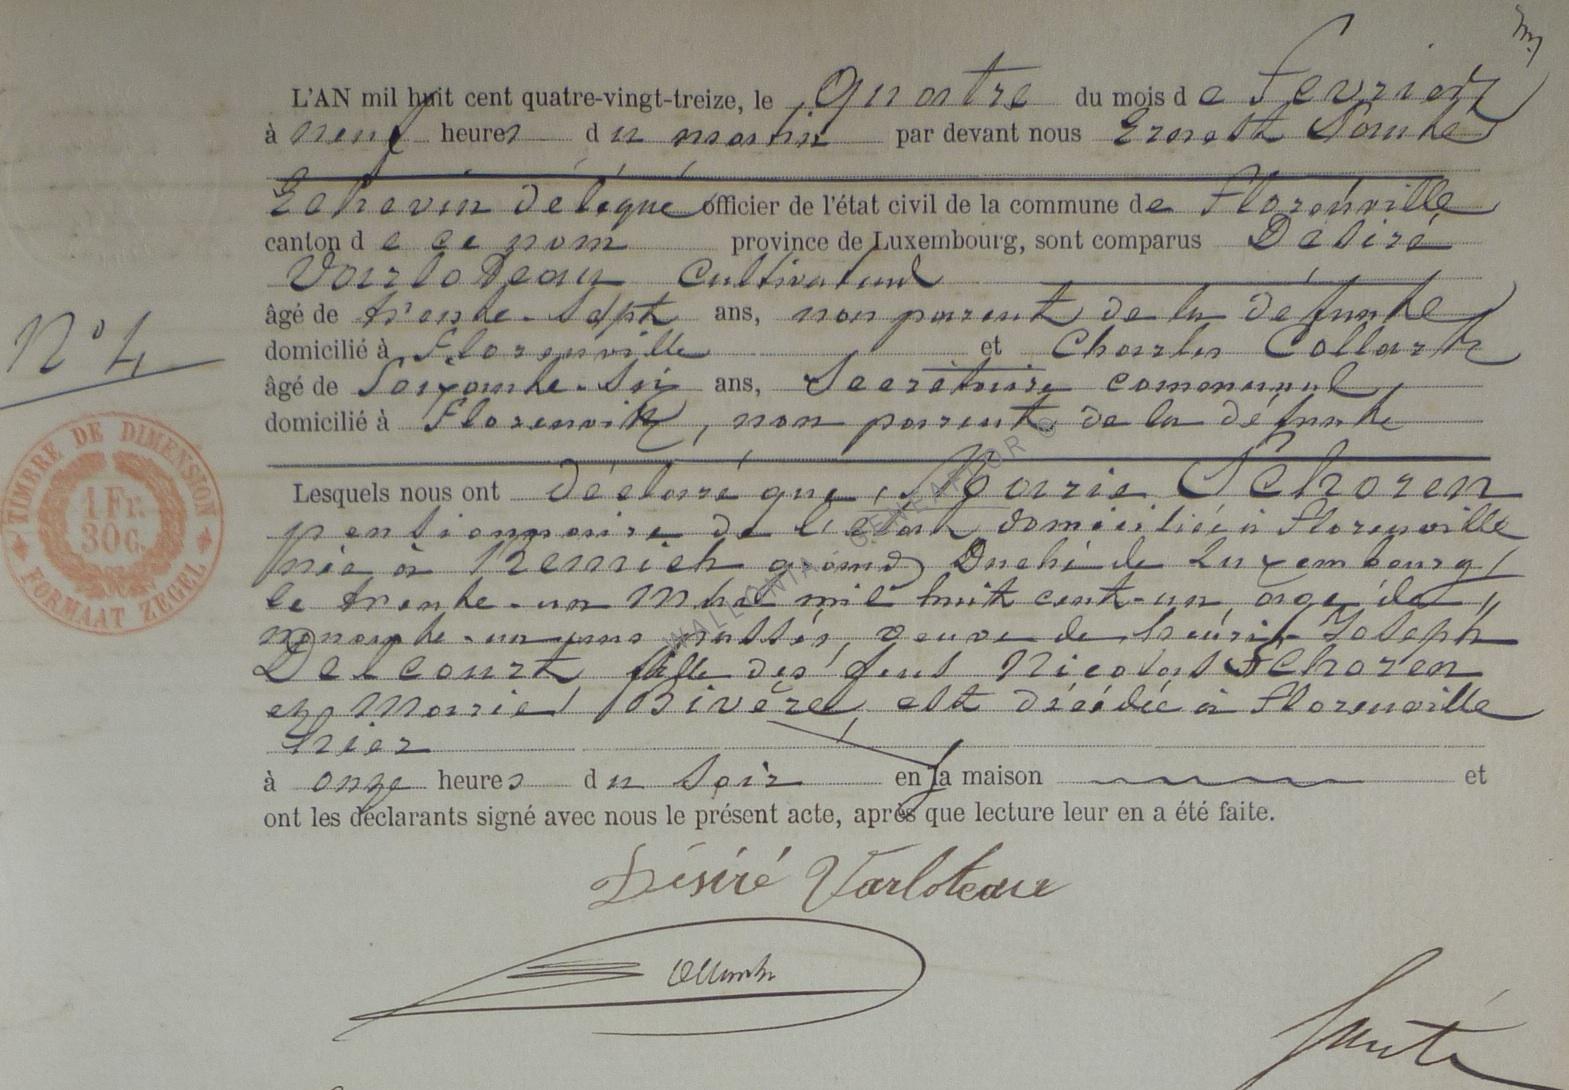 L'AN mil huit cent quatre-vingt-treize, le Quatre du mois de Fevrier
à neuf heures du matin par devant nous Ernest
Echevin délégué officier de l'état civil de la commune de Florenville
canton de ce nom province de Luxembourg, sont comparus Désiré
Varloteau Cultivateur
âgé de trente-sept ans, non parent de la défunte
N° 4
domicilié à Florenville et Charles Collart
âgé de Soixante-six ans, Secrétaire communal
domicilié à Florenville, non parent de la défunte
TIMBRE DE DIMENSION
1 Fr.
30 C.
FORMAAT ZEGEL
Lesquels nous ont déclaré que Marie Schoren
pensionnaire de l'état domiciliée à Florenville
née à Remich grand Duché de Luxembourg
le trente-un mil huit cent-un, âgé de
nonante-un ans passés, veuve de Joseph
Delcourt fille des feus Nicolas Schoren
et Marie est décédée à Florenville
hier
à onze heures du soir en la maison et
ont les déclarants signé avec nous le présent acte, après que lecture leur en a été faite.
Désiré Varloteaux
Collart
WALLONIA GENEALOR ©